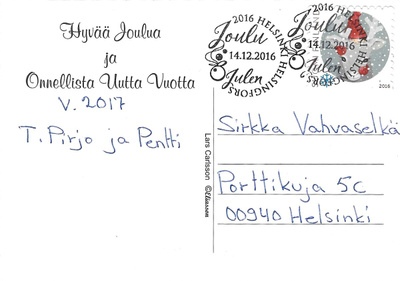 Hyvää Joulua
ja
Onnellista Uutta Vuotta
V. 2017
T. Pirjo ja Pentti
2016 HELSINKI HELSINGFORS
Joulu
14.12.2016
Julen
2016 HELSINKI HELSINGFORS
Joulu
14.12.2016
Julen
FINLAND
2016
Lars Carlsson ©Eliasson
Sirkka Vahvaselkä
Porttikuja 5C
00940 Helsinki